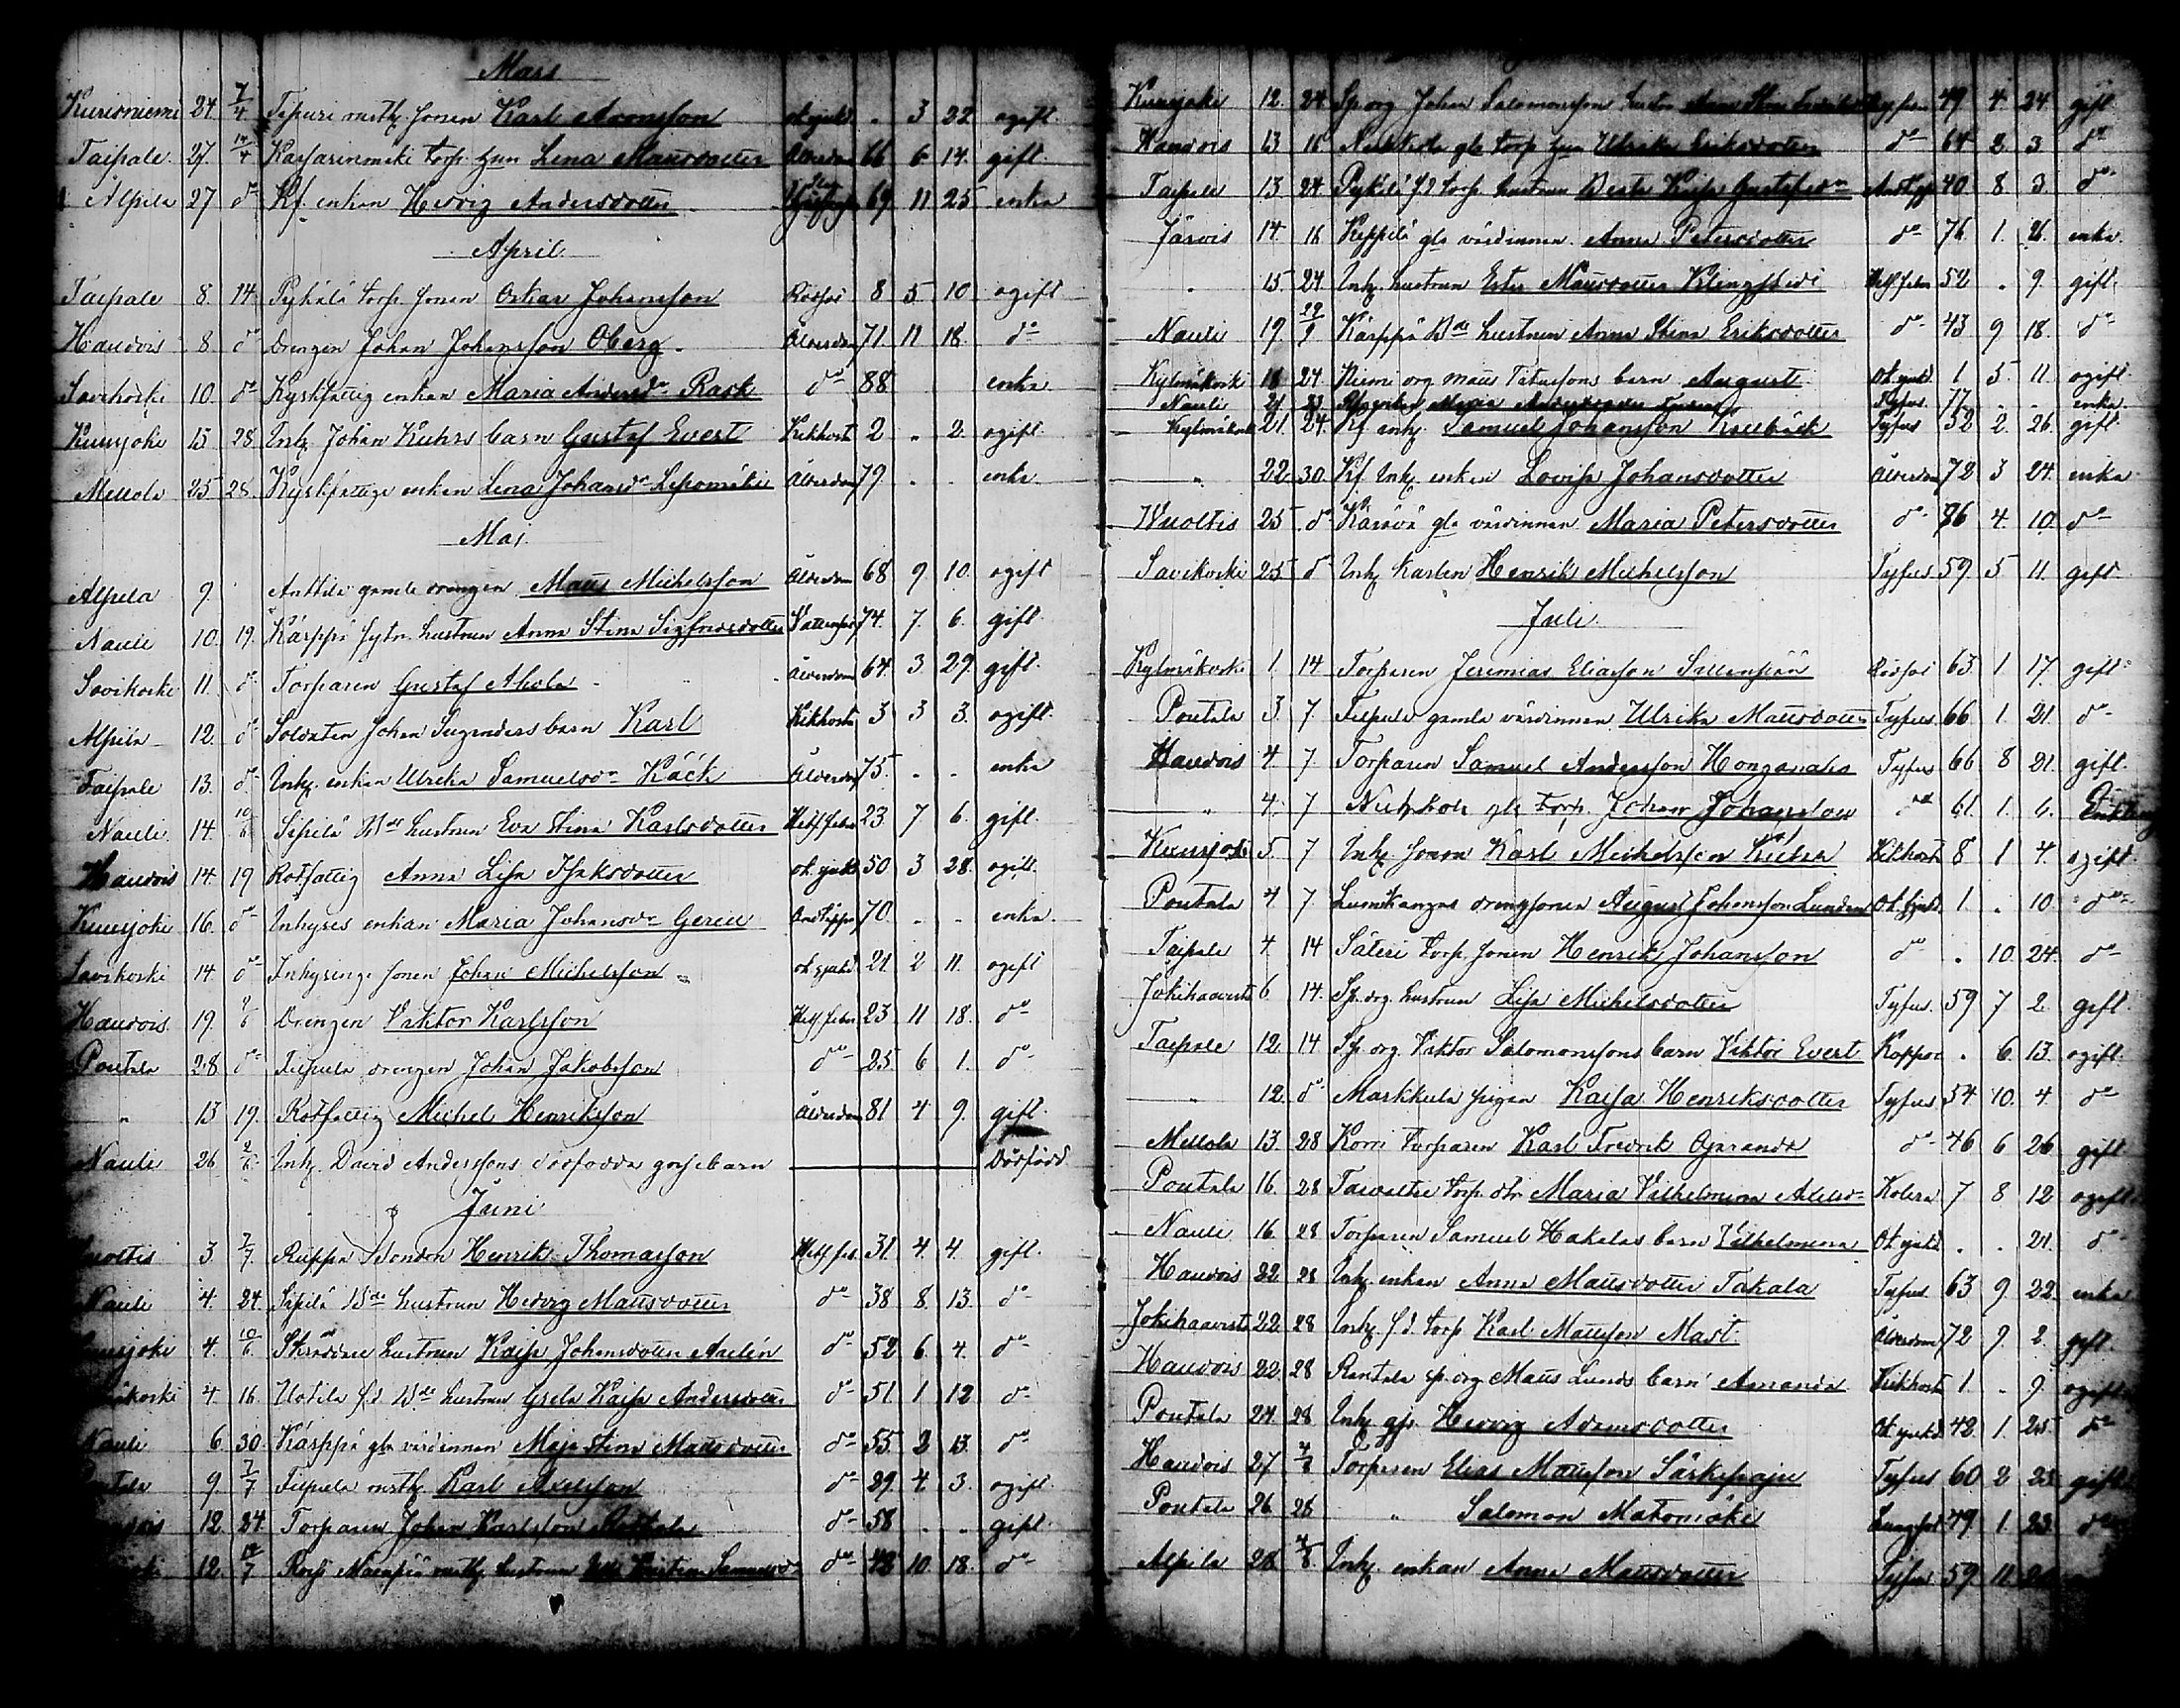 Mars
Kurisniemi 24. 7/4 Tipuri mstg sonen Karl Aronsson ok. sjukd. . 3 22 ogift.
Taipale. 27. 14/4 torp. hun Lena Mattsdotter Ålderdom 66 6 14. gift.
Alpila 27 do Kf. enkan Hedvig Andersdotter 69 11 25 enka
April.
Taipale 8. 14 Pykälä torp. sonen Oskar Johansson Rödsot 8 5 10 ogift
Haudois 8. do Drengen Johan Johansson Öberg. Ålderdom 71. 11 18. do
Savikoski 10. do Kyrkfattig enkan Maria Andersdr Rask do 88 enka
Kuusjoki 15 28. Inh. Johan Kuhrs barn Gustaf Evert Kikhosta 2 „ 2 ogift
Mellola 25 28. Kyrkfattige enkan Lena Johansdr Ålderdom 79. . . enka
Maj.
Alpila 9. . Anttila gamle drengen Matts Michelsson Ålderdom 68 9 10. ogift
Nauli 10. 19. Kärppä hustrun Anna Stina Sigfridsdotter Vattensot 74. 7. 6. gift.
Savikoski 11. do Torparen Gustaf Ahola Ålderdom 64. 3 29. gift.
Alpila 12. do Soldaten Johan barn Karl Kikhosta 3 3 3. ogift.
Taipale 13. do Inh. enkan Ulrika Samuelsdr Käck Ålderdom 75. . . enka
Nauli 14. 10/6 Sipilä Bds hustrun Eva Stina Karlsdotter Hetsfeber 23. 7 6. gift.
Haudois 14. 19 Rotfattig Anna Lisa Isaksdotter ok. sjukd. 50 3 28. ogift.
Kuusjoki 16. do Inhyses enkan Maria Johansdr 70. . . enka.
Savikoski 14. do Inhysinge sonen Johan Michelsson ok sjukd. 21 2 11. ogift
Haudois. 19. 2/6 Drengen Viktor Karlsson Hetsfeber 23 11 18. do
Poutala 28. do Tiipula drengen Johan Jakobsson do 25 6 1. do
„ 13 19. Rotfattig Michel Henriksson Ålderdom 81 4 9. gift.
Nauli 26 2/6 Inh. David Anderssons dödfödda gossebarn Dödfödd
Juni
3. 7/7. Ruppa Bonden Henrik Thomasson Hetsfeb. 31. 4. 4. gift.
Nauli 4. 24. Sipilä Bds hustrun Hedvig Mattsdotter do 38 8. 13. do
4. 10/6. Skräddare hustrun Kajsa Johansdotter do 52 6. 4. do
4. 16 Uotila f.d. Bds hustrun Greta Kajsa Andersdotter do 51. 1 12 do
Nauli 6. 30. Kärppä gla värdinnan Maja Stina Mattsdotter do 55. 2 13. do
Poutala 9. 7/7 Tiipula mstg. Karl Axelsson do 29. 4 3. ogift.
12. 24 Torparen Johan Karlsson do 58 . . gift.
12. Rois mstg. hustrun Samuelsdr do 48 10. 18. do
Kuusjoki 12. 24. Sp.org Johan Salomonsson hustru Anna Stina 49 4. 24. gift.
Haudois 13 16 gla torp. hun Ulrika Eriksdotter do 64 2 3 do
Taipale 13 24 Pykälä f.d. torp. hustrun Beata Kajsa Gustafsdr 40 8 3. do
Järvis 14. 16 Kippilä gla värdinnan. Anna Petersdotter do 76 1. 26. enka.
„ 15. 24. Inh. hustrun Ester Mattsdotter Klingstedt Hetsfeber 52 „ 9. gift.
Nauli 19. Kärppä Bds hustrun Anna Stina Eriksdotter do 43 9 18. do
Kylmäkoski 18 24. Niemi org Matts barn August Ok. sjukd. 1 5. 11. ogift
Nauli 21 23 Maria Tyfus 77 . . enka.
Kylmäkoski 21. 24. Kf inh. Samuel Johansson Tyfus 52 2. 26. gift
„ 22. 30. Kf. Inh. enkan Lovisa Johansdotter Ålderdom 72 3 24. enka
Wuoltis 25 do gla värdinnan Maria Petersdotter do 76 4. 10. do
Savikoski 25 do Inh. Karlen Henrik Michelsson Tyfus 59. 5. 11. gift.
Juli.
Kylmäkoski 1. 14 Torparen Jeremias Eliasson Sallanpää Rödsot 63 1 17. gift
Poutala 3. 7. Tiipula gamla värdinnan Ulrika Mattsdotter Tyfus. 66 1. 21. do
Haudois 4. 7. Torparen Samuel Andersson Tyfus 66 8 21. gift.
„ 4. 7 gla Torp. Johan Johansson do 61. 1. 6. Enkling
Kuusjoki 5. 7 Inh. sonen Karl Michelsson Kikhosta 8 1 4. ogift.
Poutala 4 7 drengsonen August Johansson Lunden Ok. sjukd. 1. . 10. do
Taipale 4 14 Säteri torp. sonen Henrik Johansson do . 10. 24. do
Jokihaavisto 6. 14. Sp.org. hustrun Lisa Michelsdotter Tyfus. 59 7 2. gift.
Taipale 12. 14 Sp. org. Viktor Salomonssons barn Viktor Evert Koppor . 6. 13. ogift.
„ 12. do Markkula pigan Kajsa Henriksdotter Tyfus. 54 10. 4. do
Mellola 13. 28 Korri Torparen Karl Fredrik do 46 6 26 gift
Poutala 16. 28 torp. dtr Maria Vilhelmina Kolera 7 8 12 ogift.
Nauli 16. 28 Torparen Samuel Hakalas barn Vilhelmina Ok sjukd. . . 21. do
Haudois 22. 28 Inh. enkan Anna Mattsdotter Takala Tyfus 63 9. 22. enka
Jokihaavisto 22. 28 Inh. f.d. torp Karl Mattsson Mast. Ålderdom 72 9. 2. gift.
Haudois 22. 28 Rantala sp. org Matts Lunds barn Amanda Kikhosta 1. . 9. ogift
Poutala 24. 28 Inh. Hedvig Adamsdotter Ok sjukd. 42. 1. 25. do
Haudois 27. 4/8 Torparen Elias Mattsson Särkipaju Tyfus 60 2 23. gift
Poutala 26. 28 „ Salomon Matomäki 49 1. 23. do
Alpila 28. 4/8 Inh. enkan Anna Mattsdotter Tyfus 59. 11.